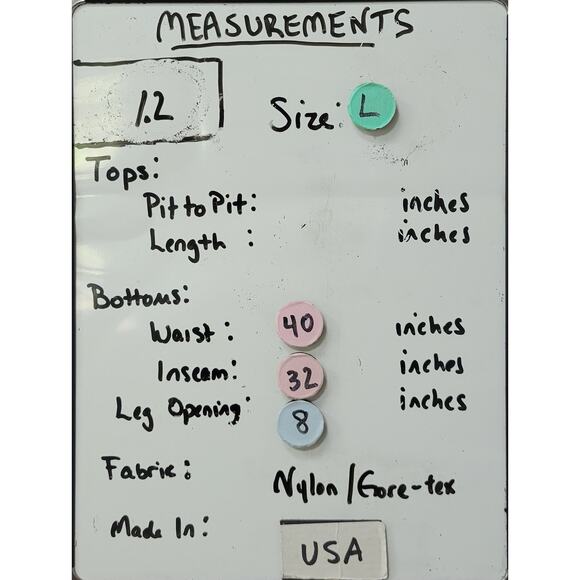 MEASUREMENTS
1.2
Size: L
Tops:
Pit to Pit: inches
Length : inches
Bottoms:
Waist: 40 inches
Inseam: 32 inches
Leg Opening: 8 inches
Fabric: Nylon/Gore-tex
Made In: USA